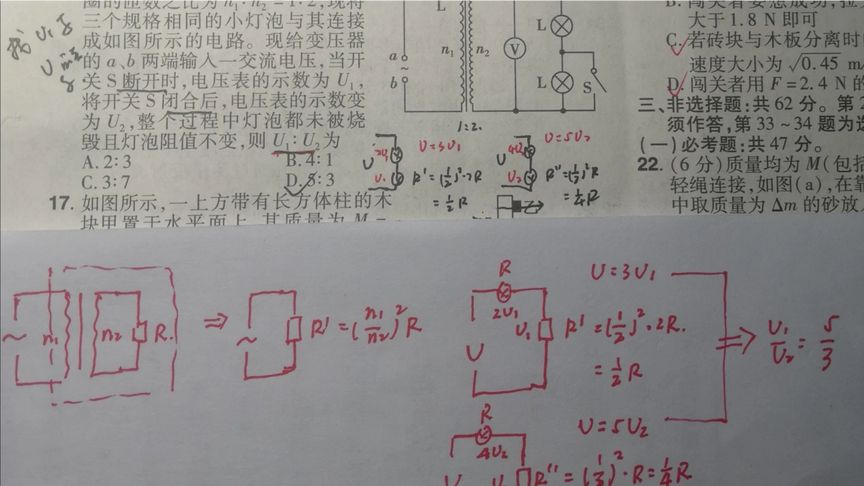 圈的匝数之比为 n₁:n₂=1:2,现将
三个规格相同的小灯泡与其连接
成如图所示的电路。现给变压器
的 a、b 两端输入一交流电压,当开
关 S 断开时,电压表的示数为 U₁,
将开关 S 闭合后,电压表的示数变
为 U₂,整个过程中灯泡都未被烧
毁且灯泡阻值不变,则 U₁:U₂ 为
A. 2:3 B. 4:1
C. 3:7 D. 5:3
17. 如图所示,一上方带有长方体柱的木
块甲置于水平面上,其质量为 M=
a
~
b
n₁ n₂
V
L
L
S
1:2.
U
2U₁
U₁
U=3U₁
R'=(1/2)²·2R
=1/2R
U
4U₂
U₂
U=5U₂
R''=(1/2)²R
=1/4R
大于 1.8 N 即可
C. 若砖块与木板分离时
速度大小为 √0.45 m/
D. 闯关者用 F=2.4 N 的
三、非选择题:共 62 分。第
须作答,第 33~34 题为选
(一)必考题:共 47 分。
22. (6 分)质量均为 M(包括
轻绳连接,如图(a),在靠
中取质量为 Δm 的砂放
~ n₁ n₂ R
⇒ ~ R'=(n₁/n₂)²R
R
2U₁
U
U₁
U=3U₁
R'=(1/2)²·2R.
=1/2R
⇒ U₁/U₂=5/3
U=5U₂
R
4U₂